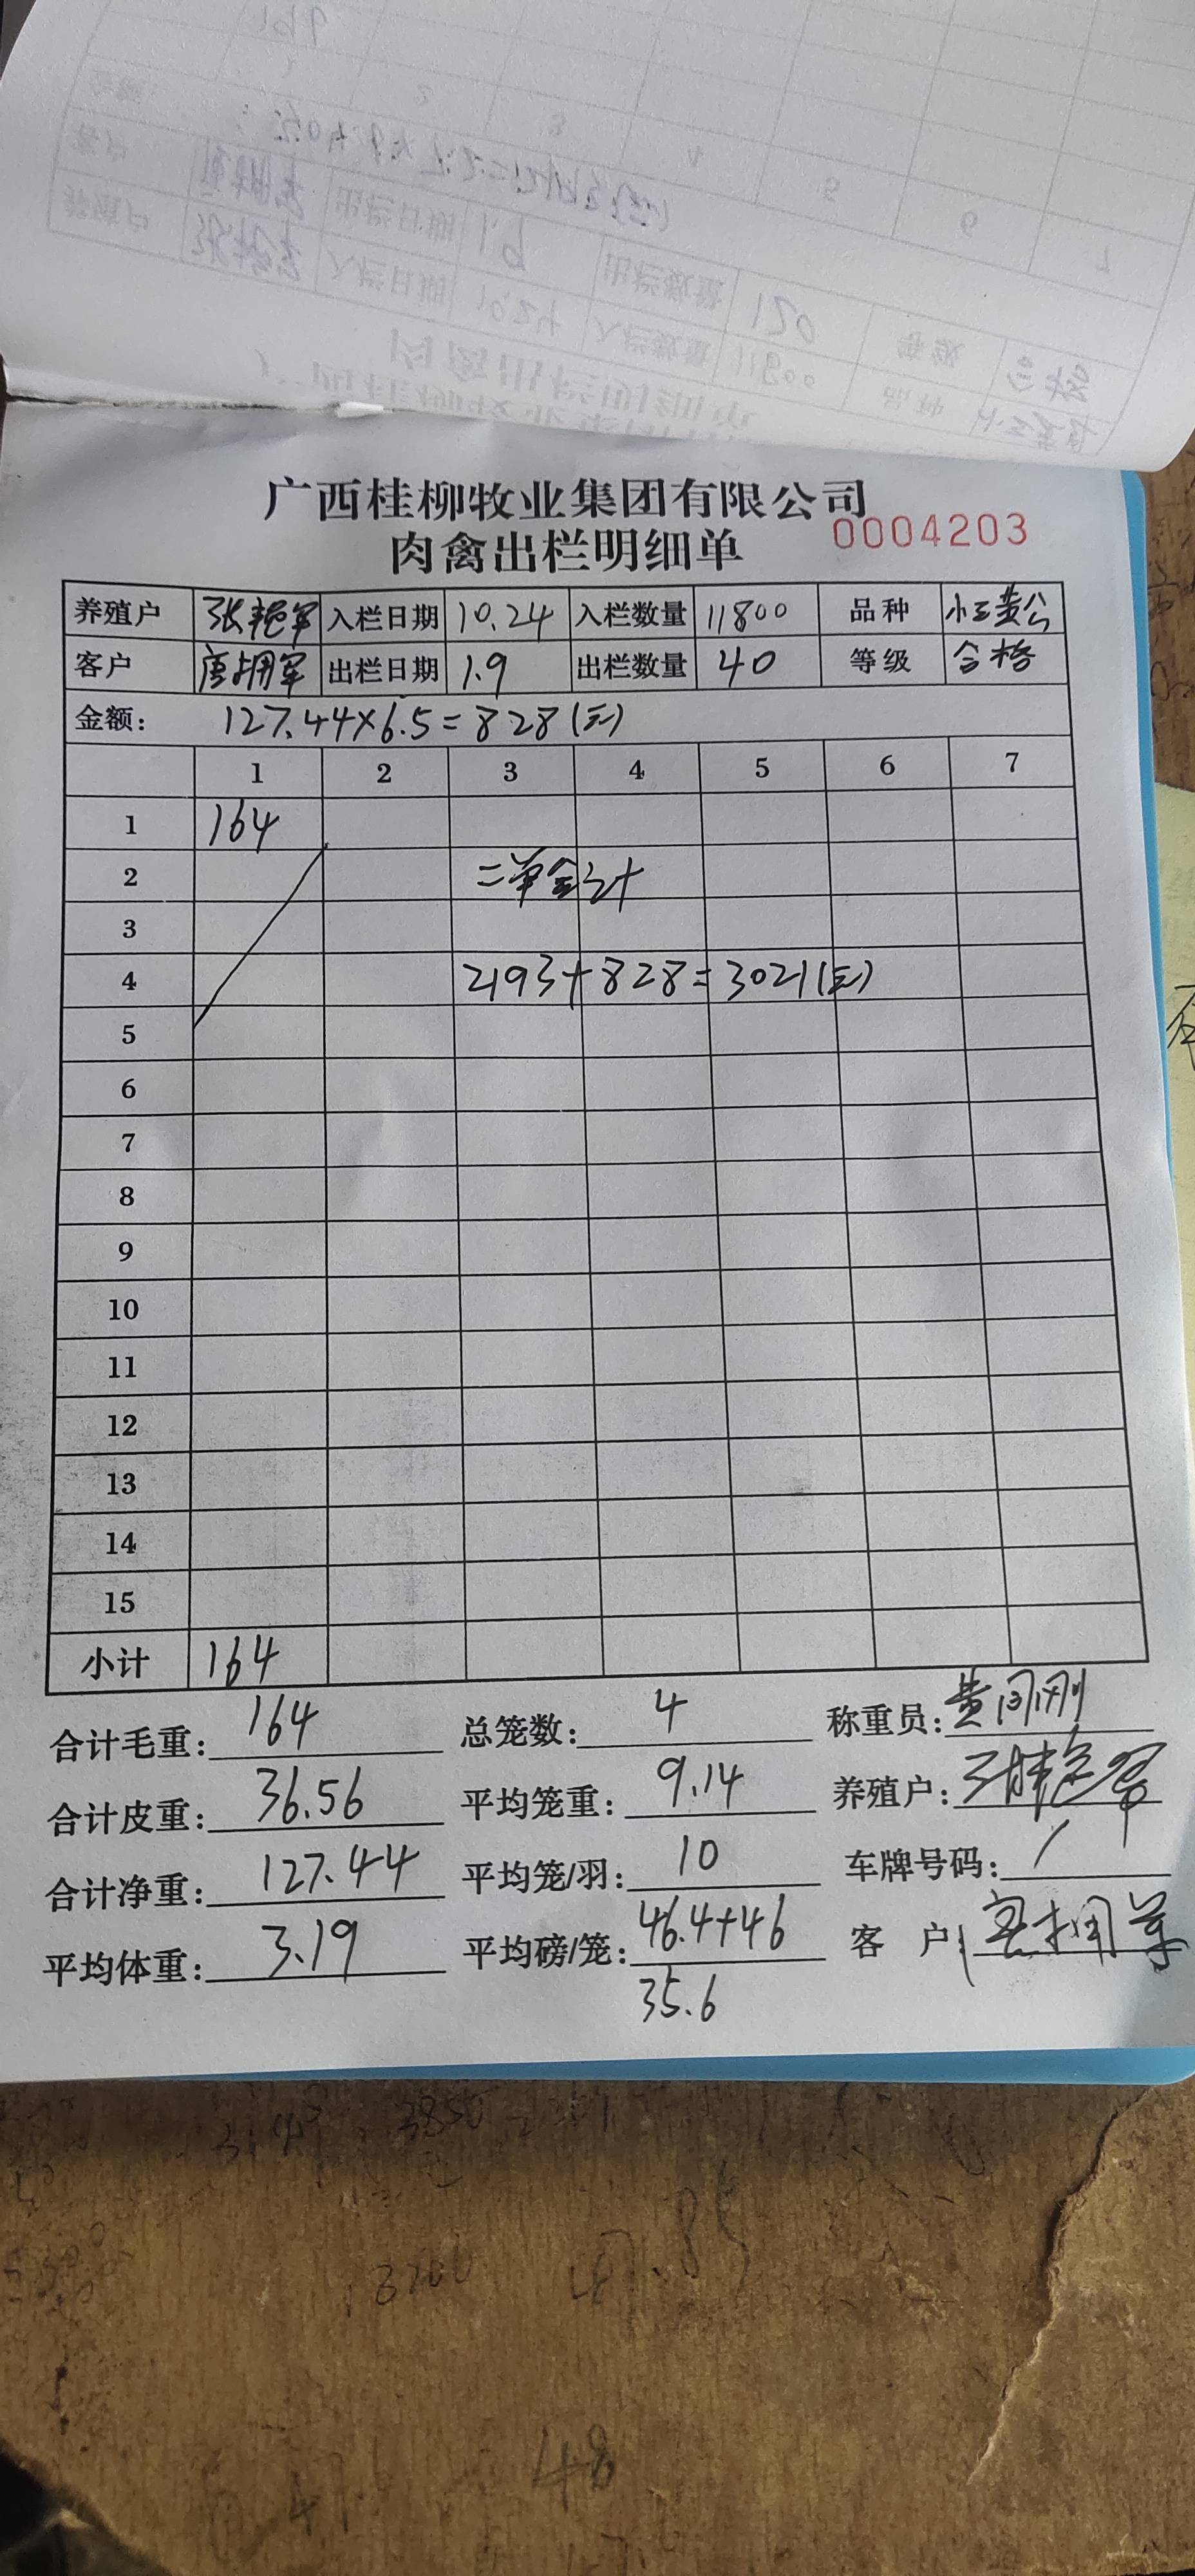 广西桂柳牧业集团有限公司
肉禽出栏明细单 0004203
养殖户 张艳军 入栏日期 10.24 入栏数量 11800 品种 小三黄公
客户 唐拥军 出栏日期 1.9 出栏数量 40 等级 合格
金额: 127.44×6.5=828(元)
1 2 3 4 5 6 7
1 164
2 二单合计
3
4 2193+828=3021(元)
5
6
7
8
9
10
11
12
13
14
15
小计 164
合计毛重: 164 总笼数: 4 称重员:
合计皮重: 36.56 平均笼重: 9.14 养殖户: 张艳军
合计净重: 127.44 平均笼/羽: 10 车牌号码: /
平均体重: 3.19 平均磅/笼: 46.4+46 客户: 唐拥军
35.6
48